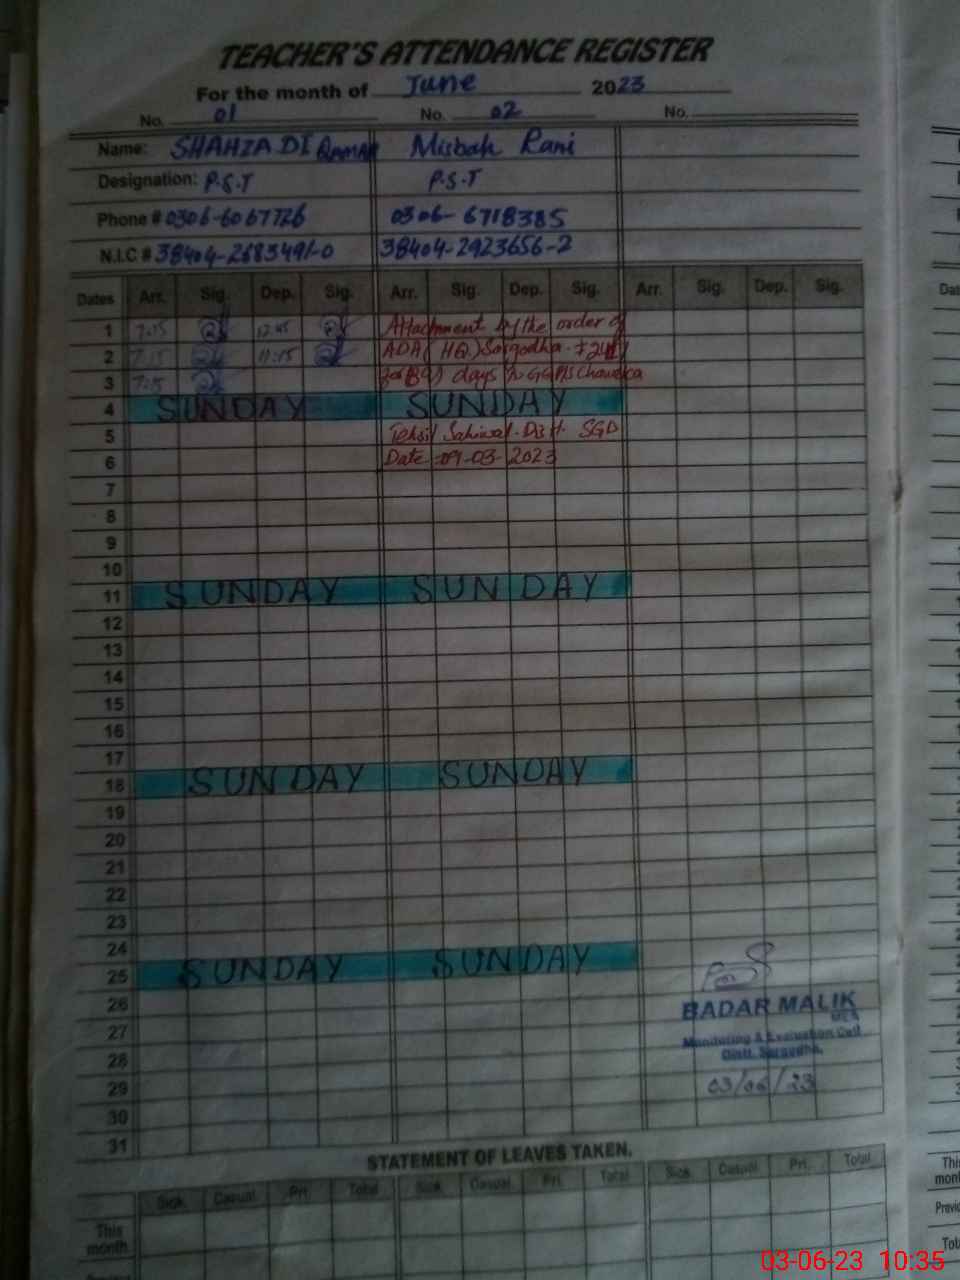 TEACHER'S ATTENDANCE REGISTER
For the month of June 2023
No. 01 No. 02 No.
Name: SHAHZADI QAMAR Misbah Rani
Designation: P.S.T P.S.T
Phone # 0306-6067726 0306-6718385
N.I.C # 38404-2683491-0 38404-2923656-2
Dates Arr. Sig. Dep. Sig. Arr. Sig. Dep. Sig. Arr. Sig. Dep. Sig.
1 7:15 12:45 Attachment by the order of
2 7:15 11:15 ADA (HQ) Sargodha
3 7:15 days
4 SUNDAY SUNDAY
5 Tehsil Sahiwal Dist. SGD
6 Date :09-03-2023
7
8
9
10
11 SUNDAY SUNDAY
12
13
14
15
16
17
18 SUNDAY SUNDAY
19
20
21
22
23
24
25 SUNDAY SUNDAY
26
27
28
29
30
31
BADAR MALIK
MEA
Monitoring & Evaluation Cell
Distt. Sargodha.
03/06/23
STATEMENT OF LEAVES TAKEN.
Sick Casual Pri. Total Sick Casual Pri. Total Sick Casual Pri. Total
This
month
03-06-23 10:35